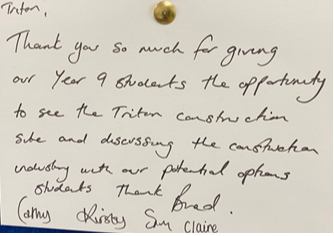 Triton,
Thank you so much for giving
our Year 9 students the opportunity
to see the Triton construction
site and discussing the construction
industry with our potential options
students Thank Brad.
Cathy Kirsty Sam Claire